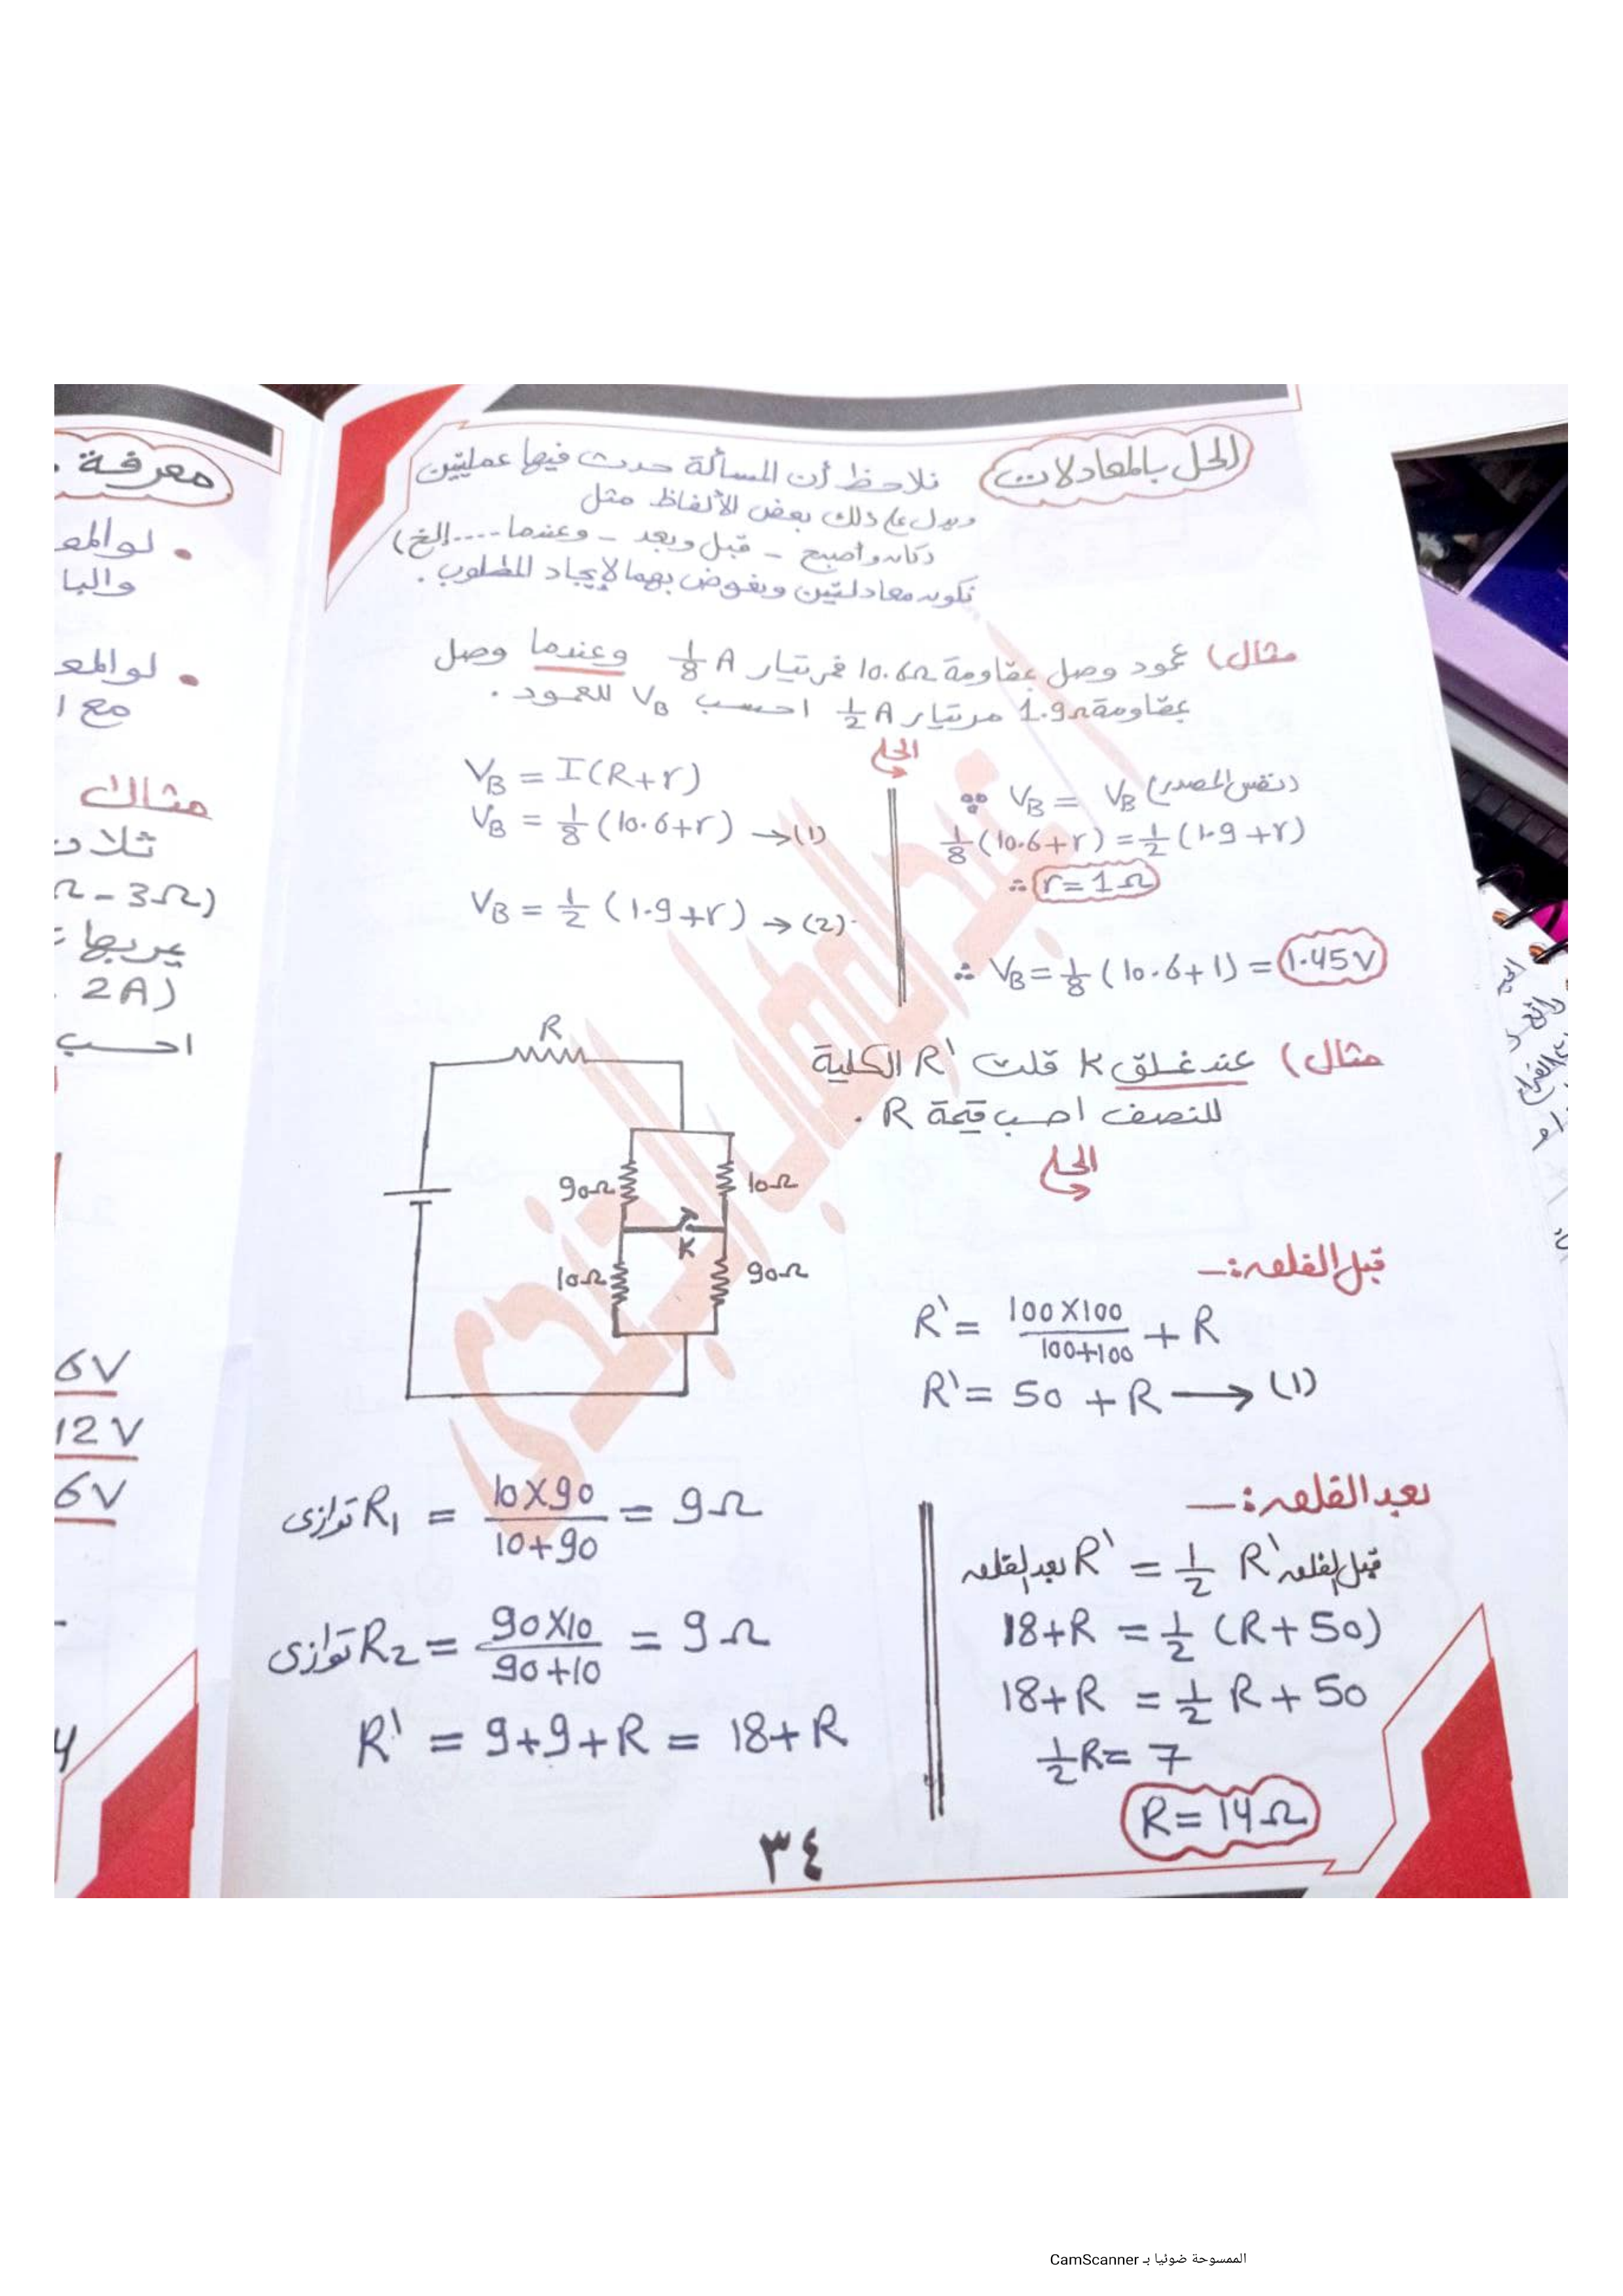 الحل بالمعادلات
نلاحظ أن المسألة حدث فيها عمليتين
ويدل على ذلك بعض الألفاظ مثل
(كان وأصبح - قبل وبعد - وعندما .... إلخ)
نكون معادلتين ونعوض بهما لإيجاد المطلوب .
مثال) عمود وصل بمقاومة 10.6Ω فمر تيار 1/8 A وعندما وصل
بمقاومة 1.9Ω مر تيار 1/2 A احسب VB للعمود .
الحل
VB = I(R+r)
VB = 1/8 (10.6+r) →(1)
VB = 1/2 (1.9+r) →(2)
∵ VB = VB (نفس المصدر)
1/8 (10.6+r) = 1/2 (1.9+r)
∴ r = 1Ω
∴ VB = 1/8 (10.6+1) = 1.45V
مثال) عند غلق K قلت R' الكلية
للنصف احسب قيمة R .
الحل
R
90Ω
10Ω
K
10Ω
90Ω
قبل الغلق :-
R' = 100X100/100+100 + R
R' = 50 + R → (1)
بعد الغلق :-
توازى R1 = 10X90/10+90 = 9Ω
توازى R2 = 90X10/90+10 = 9Ω
R' = 9+9+R = 18+R
بعد الغلق R' = 1/2 R' قبل الغلق
18+R = 1/2 (R+50)
18+R = 1/2 R + 50
1/2 R = 7
R = 14Ω
٣٤
معرفة
• لو المع
والبا
• لو المع
مع ا
مثال
ثلاث
Ω - 3Ω)
يمر بها
2A)
احسب
6V
12V
6V
الممسوحة ضوئيا بـ CamScanner